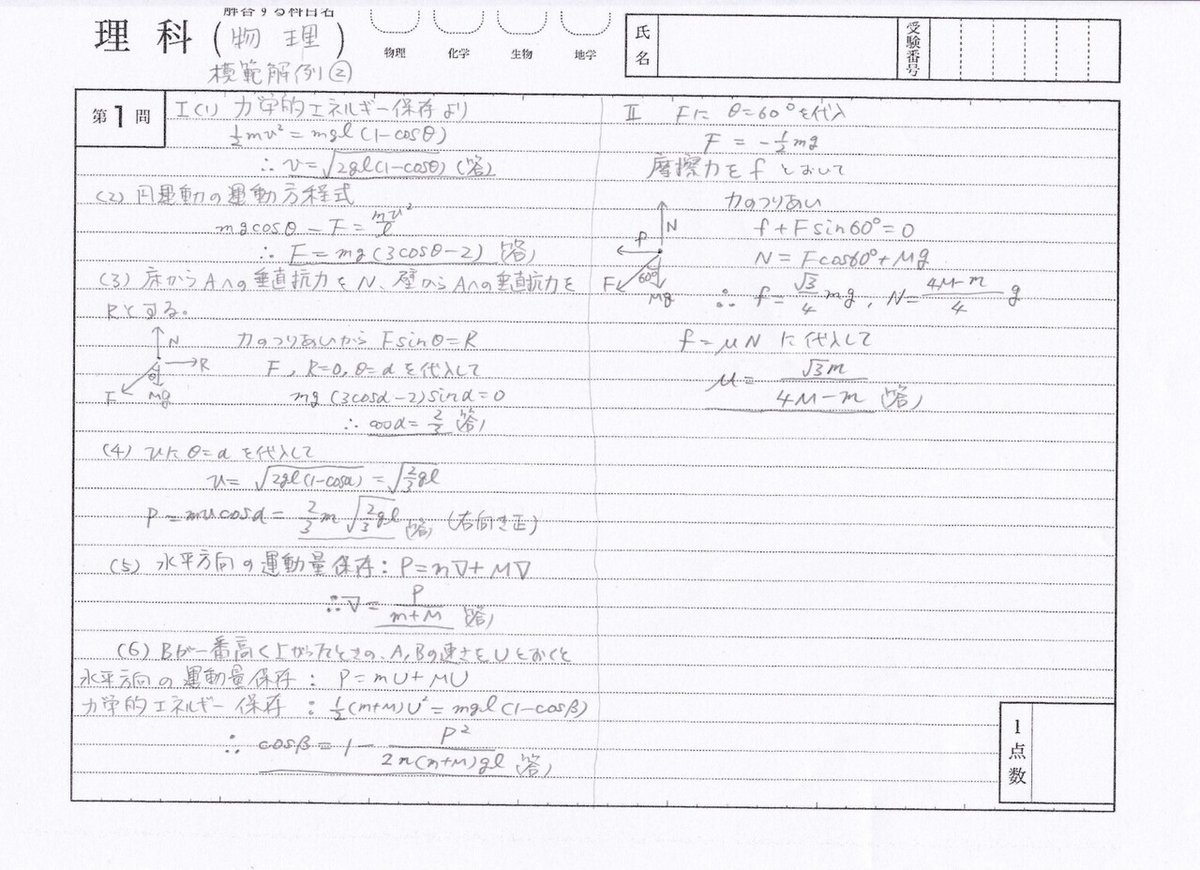 解答する科目名
理科 (物理)
物理 化学 生物 地学
氏名
受験番号
模範解例②
第1問
I (1) 力学的エネルギー保存より
½mv² = mgl(1-cosθ)
∴ v = √2gl(1-cosθ) (答)
(2) 円運動の運動方程式
mgcosθ - F = mv²/l
∴ F = mg(3cosθ-2) (答)
(3) 床からAへの垂直抗力をN、壁からAへの垂直抗力を
Rとする。
N
R
θ
F
Mg
力のつりあいから Fsinθ=R
F, R=0, θ=αを代入して
mg(3cosα-2)sinα=0
∴ cosα = 2/3 (答)
(4) vにθ=αを代入して
v = √2gl(1-cosα) = √(2/3)gl
P = mvcosα = 2/3 m √(2/3)gl (答) (右向き正)
(5) 水平方向の運動量保存: P=mV+MV
∴ V = P/(m+M) (答)
(6) Bが一番高く上がったときの、A,Bの速さをUとおくと
水平方向の運動量保存: P=mU+MU
力学的エネルギー保存: ½(m+M)U² = mgl(1-cosβ)
∴ cosβ = 1 - P²/2m(m+M)gl (答)
II Fにθ=60°を代入
F = -½mg
摩擦力をfとおいて
力のつりあい
N
f
60°
F
Mg
f+Fsin60°=0
N = Fcos60°+Mg
∴ f = √3/4 mg, N = (4M-m)/4 g
f=μNに代入して
μ = √3m/(4M-m) (答)
1点数